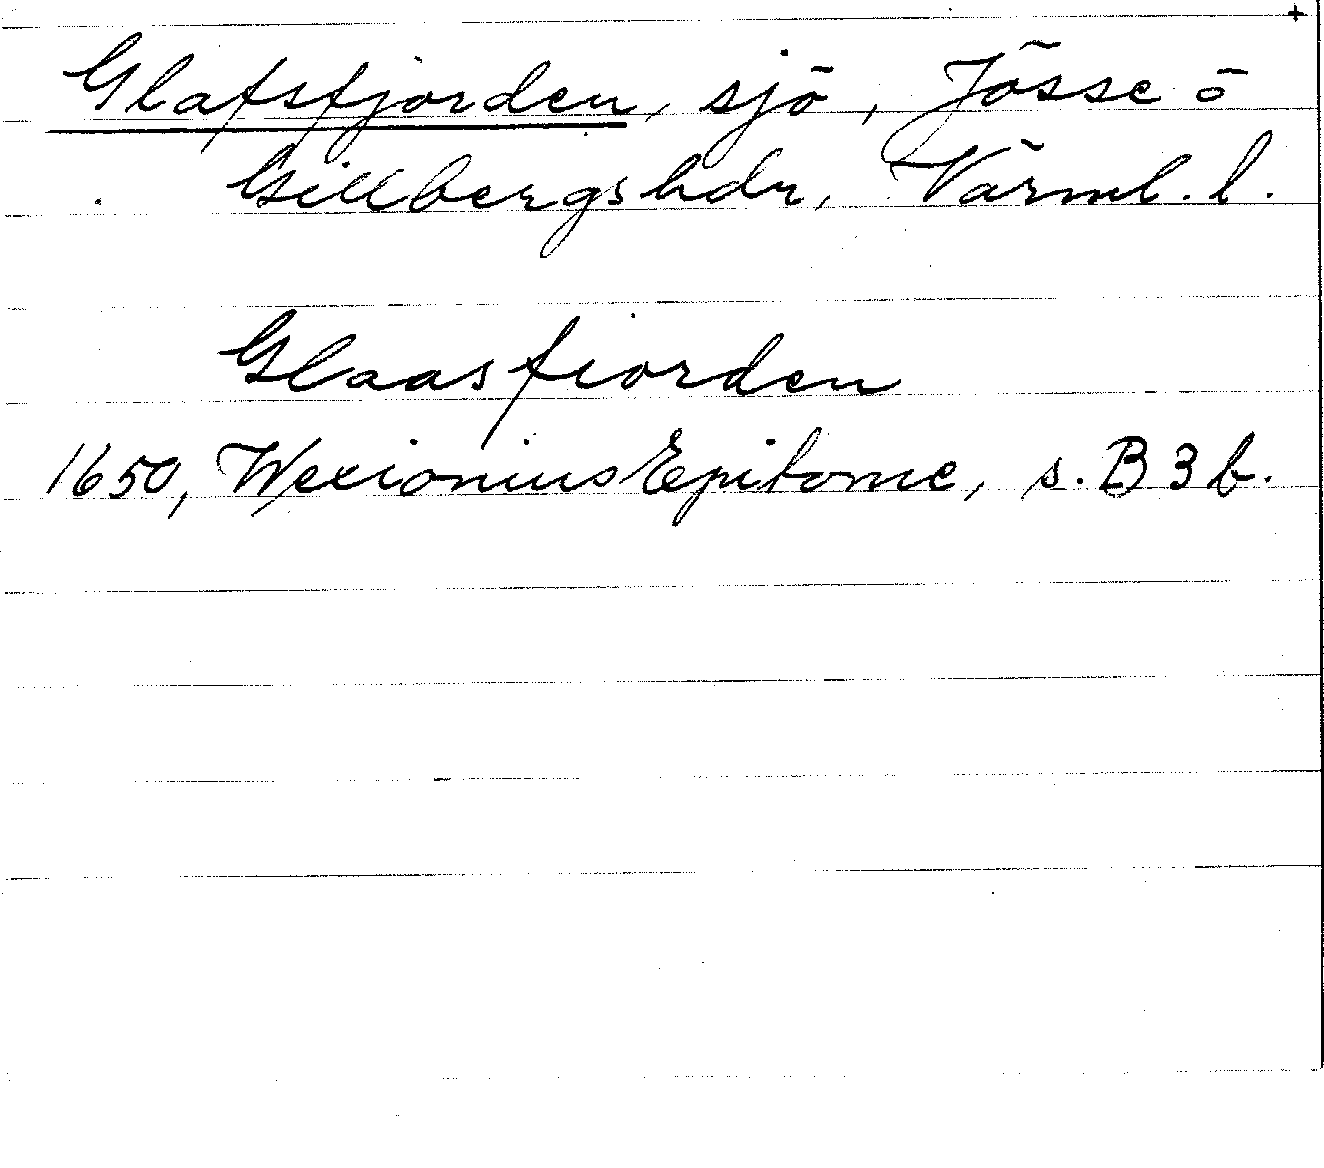 +
Glafsfjorden, sjö, Jösse o
Gillbergs hdr, Värml. l.
Glaasfiorden
1650, Wexionius Epitome, s. B 3 b.